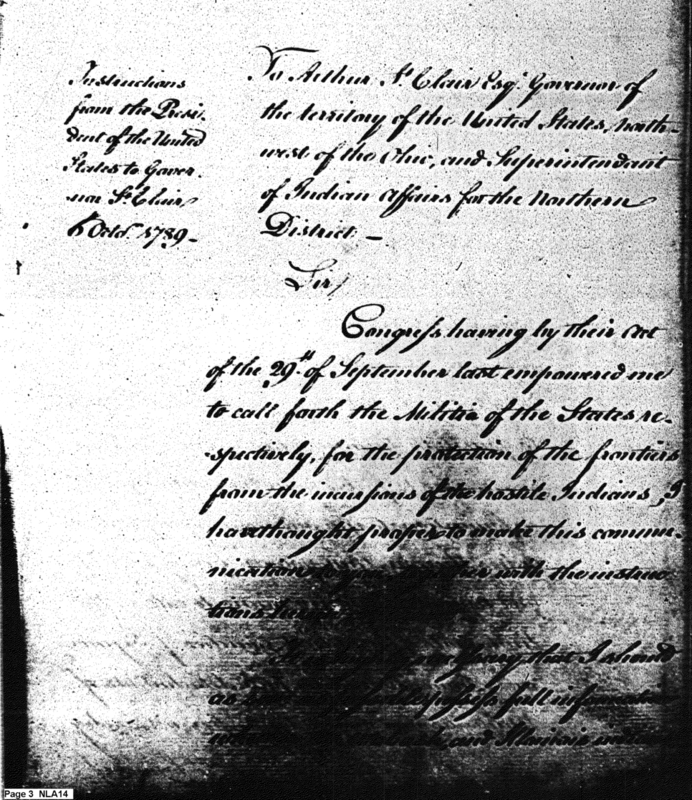 Instructions
from the Presi-
dent of the United
States to Gover-
nor St Clair,
6 Octr. 1789 -
To Arthur St Clair Esqr. Governor of
the territory of the United States, north-
west of the Ohio, and Superintendant
of Indian Affairs for the Northern
District. -
Sir,
Congress having by their Act
of the 29th. of September last empowered me
to call forth the Militia of the States re-
spectively, for the protection of the frontiers
from the incursions of the hostile Indians, I
have thought proper to make this commu-
nication to you together with the instruc
tions
that I should
as possess full information
and Illinois
Page 3 NLA14